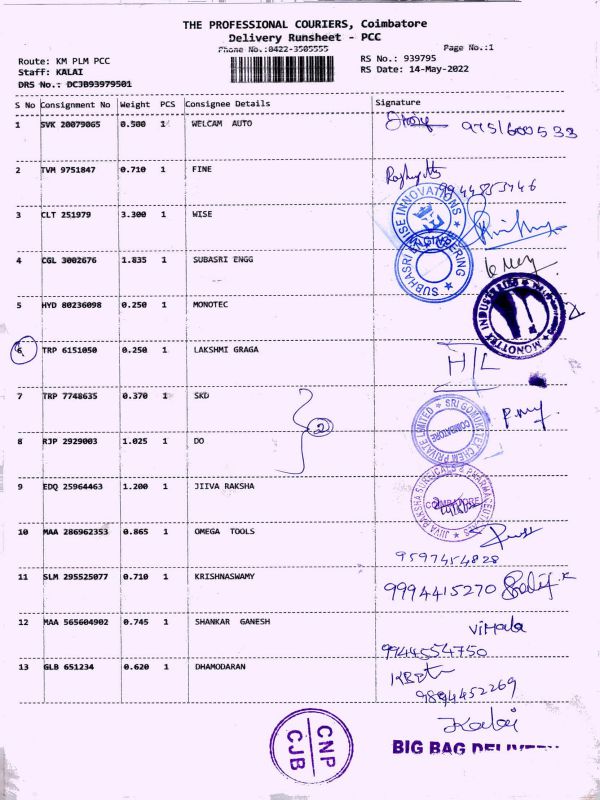 THE PROFESSIONAL COURIERS, Coimbatore
Delivery Runsheet - PCC
Phone No.:0422-3505555
Page No.:1
Route: KM PLM PCC
RS No.: 939795
Staff: KALAI
RS Date: 14-May-2022
DRS No.: DCJB93979501
S No Consignment No Weight PCS Consignee Details Signature
1 SVK 20079065 0.500 1 WELCAM AUTO
2 TVM 9751847 0.710 1 FINE
WISE INNOVATIONS
3 CLT 251979 3.300 1 WISE
4 CGL 3002676 1.835 1 SUBASRI ENGG
SUBHASRI ENGINEERING
5 HYD 80236098 0.250 1 MONOTEC
MONOTTEX INDUSTRIES
6 TRP 6151050 0.250 1 LAKSHMI GRAGA H/L
7 TRP 7748635 0.370 1 SKD
2
SRI GOKULKSTEX CHEM PRIVATE LIMITED
COIMBATORE
8 RJP 2929003 1.025 1 DO
9 EDQ 25964463 1.200 1 JIIVA RAKSHA
JIIVA RAKSHA SURGICALS & PHARMACEUTICALS
COIMBATORE
10 MAA 286962353 0.865 1 OMEGA TOOLS
9597454828
11 SLM 295525077 0.710 1 KRISHNASWAMY 9994415270
12 MAA 565604902 0.745 1 SHANKAR GANESH Vimala
9944554750
13 GLB 651234 0.620 1 DHAMODARAN
9894452269
Kalai
CNP
CJB
BIG BAG DELIVERY